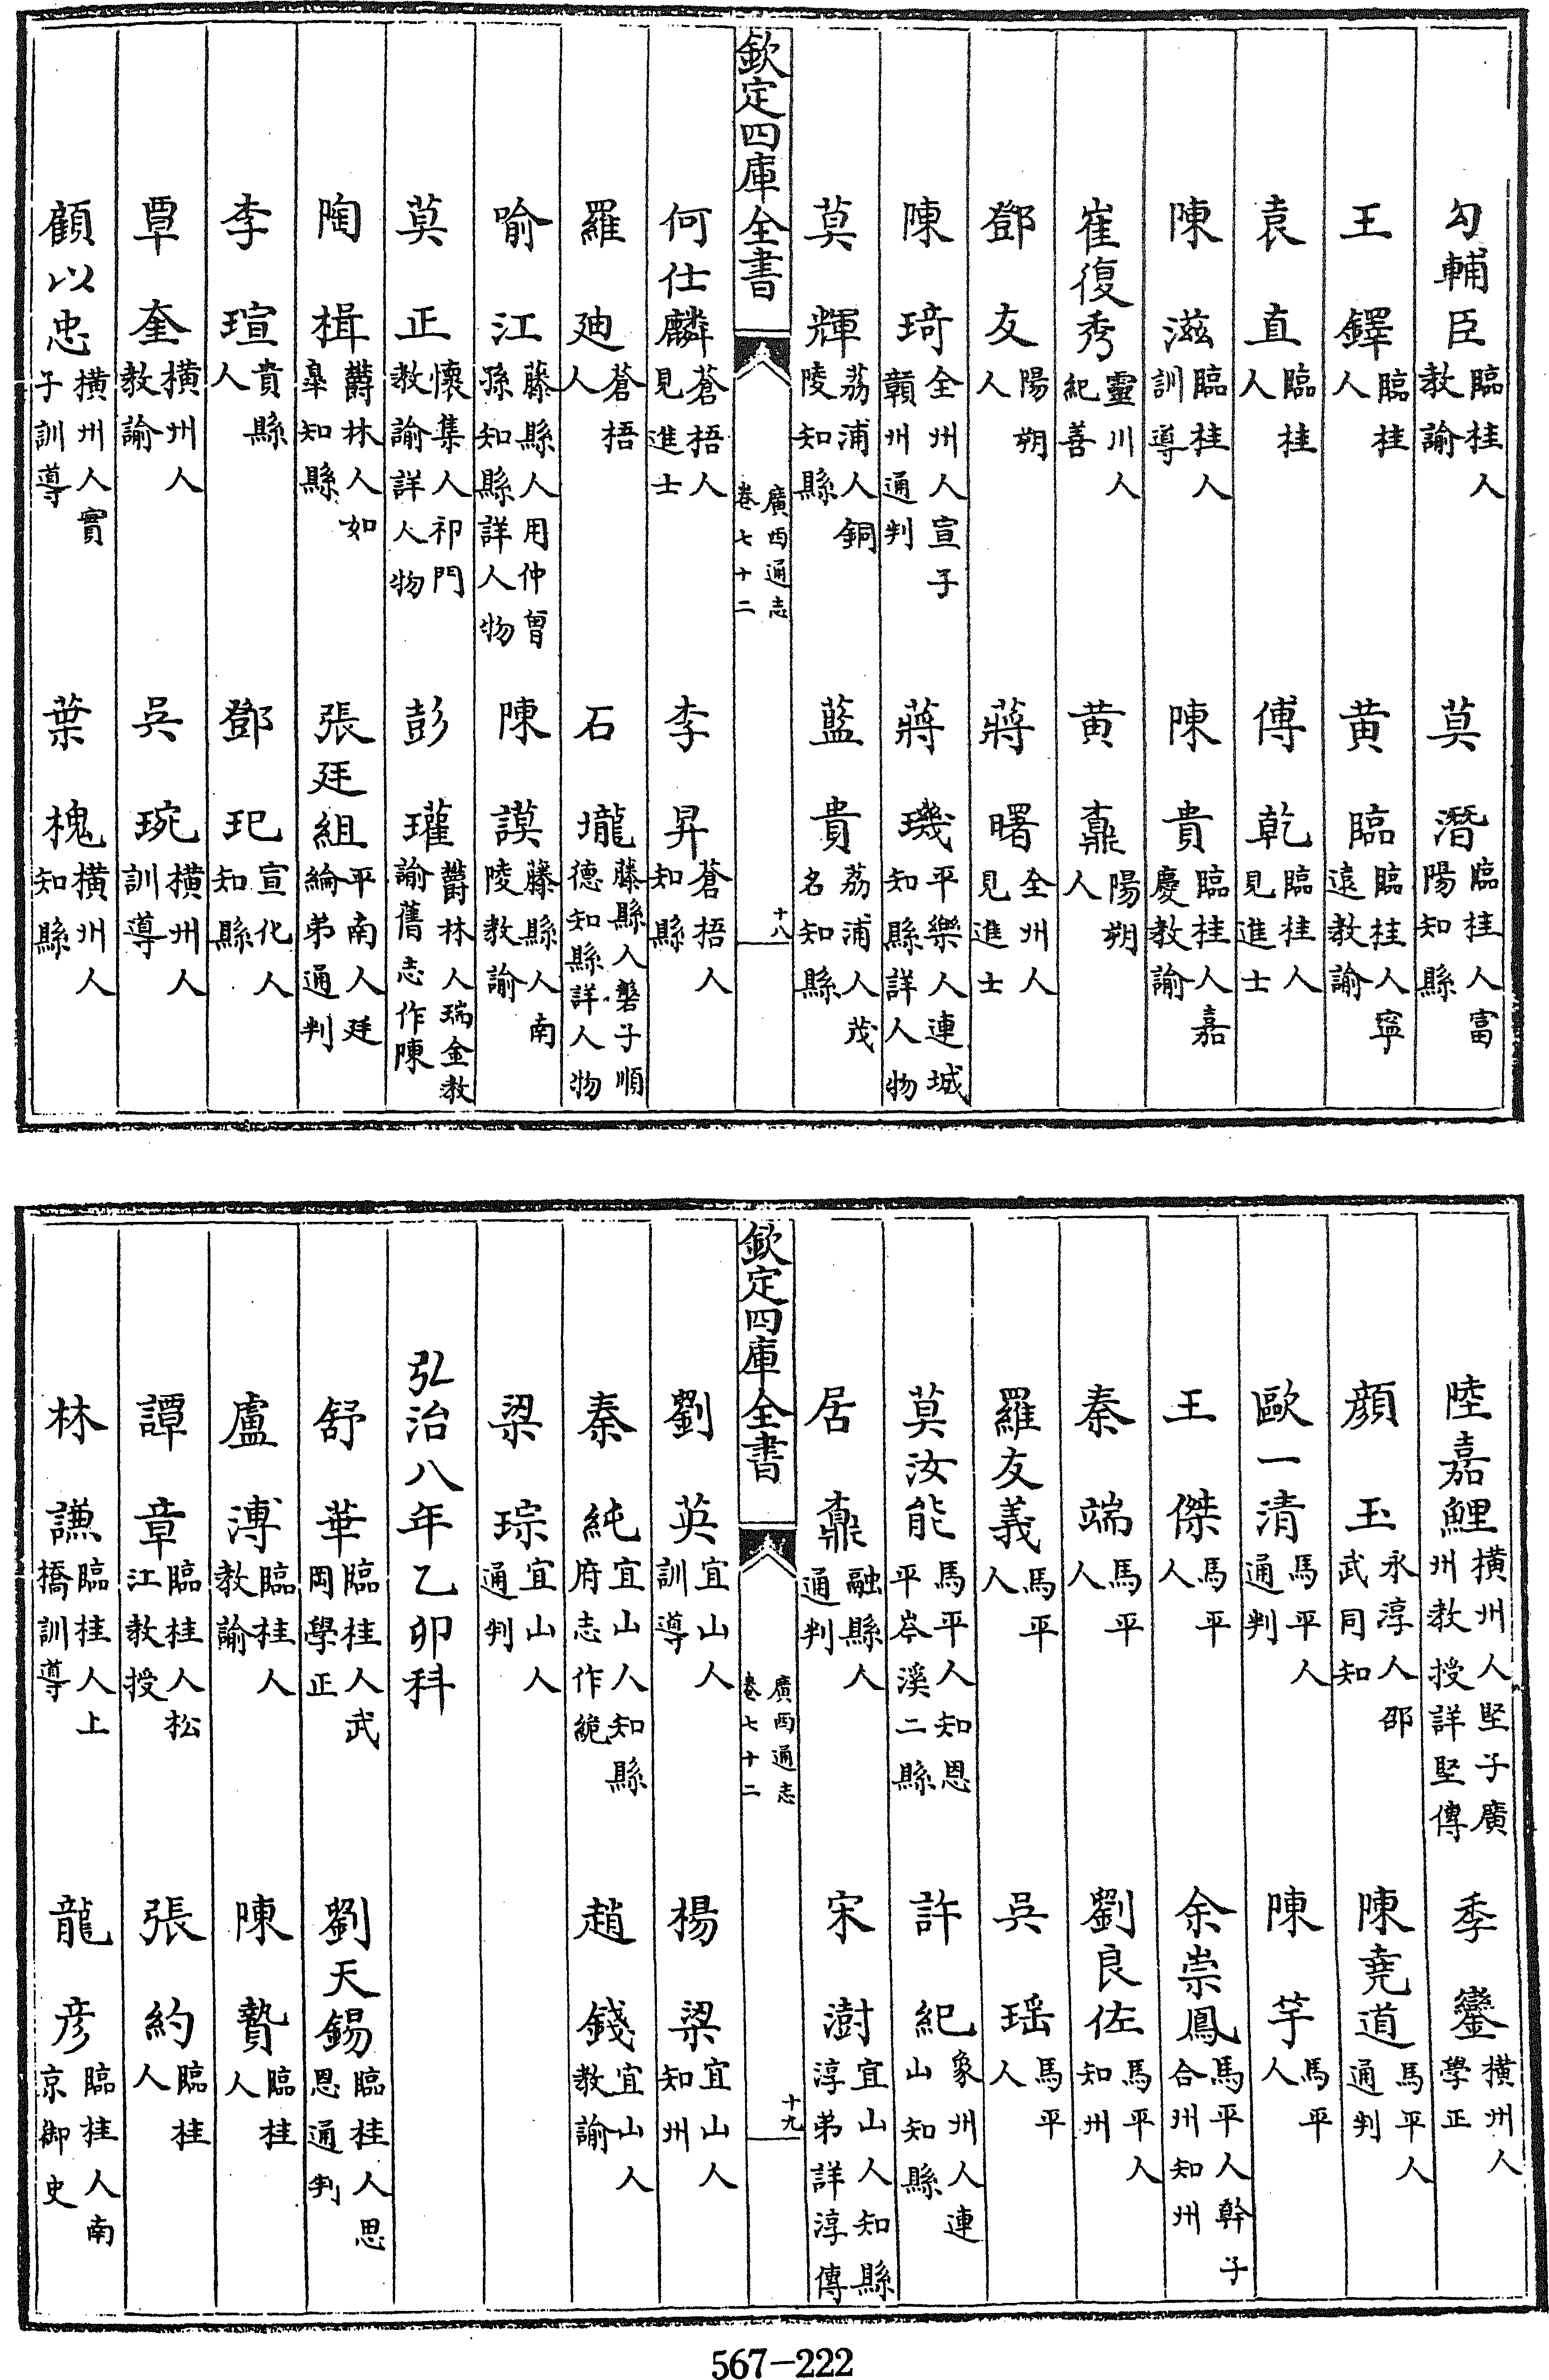 勾輔臣臨桂人教諭 莫潛臨桂人富陽知縣
王鐸臨桂人 黄臨臨桂人寧遠教諭
袁直臨桂人 傅乾臨桂人見進士
陳滋臨桂人訓導 陳貴臨桂人嘉慶教諭
崔復秀靈川人紀善 黄鼒陽朔人
鄧友陽朔人 蔣曙全州人見進士
陳琦全州人宣子贛州通判 蔣璣平樂人連城知縣詳人物
莫輝荔浦人銅陵知縣 藍貴荔浦人茂名知縣
欽定四庫全書 廣西通志卷七十二 十八
何仕麟蒼梧人見進士 李昇蒼梧人知縣
羅廸蒼梧人 石壠藤縣人磐子順德知縣詳人物
喻江藤縣人用仲曾孫知縣詳人物 陳謨藤縣人南陵教諭
莫正懷集人祁門教諭詳人物 彭瓘欝林人瑞金教諭舊志作陳
陶楫欝林人如臯知縣 張廷組平南人廷綸弟通判
李瑄貴縣人 鄧玘宣化人知縣
覃奎橫州人教諭 吳琬橫州人訓導
顧以忠橫州人實子訓導 葉槐橫州人知縣
陸嘉鯉橫州人堅子廣州教授詳堅傳 季鑾橫州人學正
顔玉永淳人邵武同知 陳堯道馬平人通判
歐一清馬平人通判 陳芋馬平人
王傑馬平人 余崇鳳馬平人幹子合州知州
秦端馬平人 劉良佐馬平人知州
羅友義馬平人 吳瑶馬平人
莫汝能馬平人知恩平岑溪二縣 許紀象州人連山知縣
居鼒融縣人通判 宋澍宜山人知縣淳弟詳淳傳
欽定四庫全書 廣西通志卷七十二 十九
劉英宜山人訓導 楊梁宜山人知州
秦純宜山人知縣府志作絁 趙錢宜山人教諭
梁琮宜山人通判
弘治八年乙卯科
舒華臨桂人武岡學正 劉天錫臨桂人思恩通判
盧溥臨桂人教諭 陳贄臨桂人
譚章臨桂人松江教授 張約臨桂人
林謙臨桂人上橋訓導 龍彦臨桂人南京御史
567-222